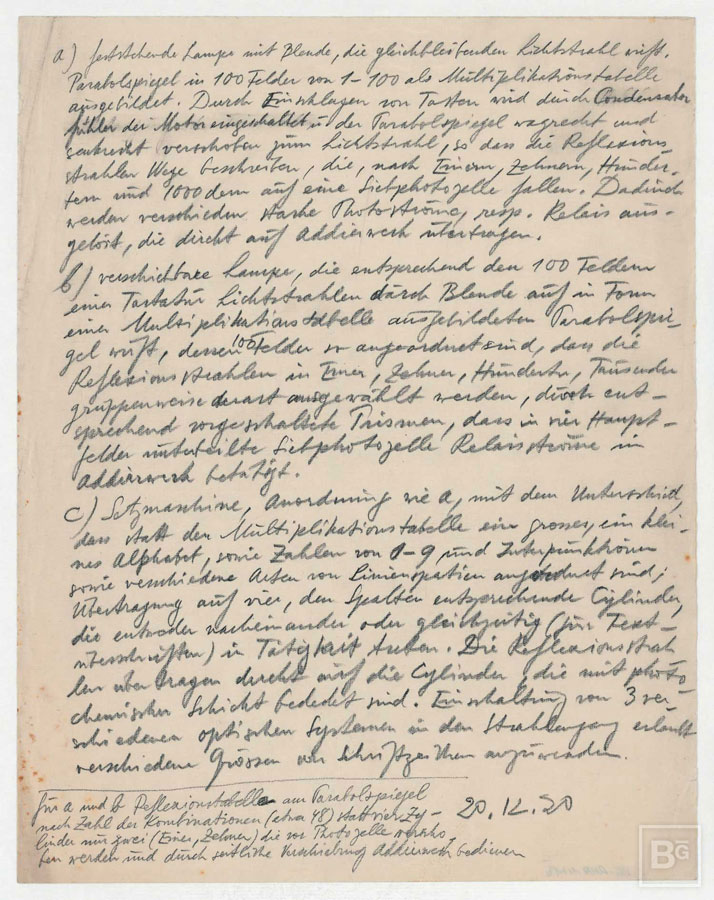 a) feststehende Lampe mit Blende, die gleichbleibenden Lichtstrahl wirft.
Parabolspiegel in 100 Felder von 1-100 als Multiplikationstabelle
ausgebildet. Durch Einschlagen von Tasten wird durch Condensator
fühler der Motor eingeschaltet u der Parabolspiegel wagrecht und
senkrecht verschoben zum Lichtstrahl, so dass die Reflexions
strahlen Wege beschreiben, die, nach Einern, Zehnern, Hunder-
tern und 1000dern auf eine Selphotozelle fallen. Dadurch
werden verschieden starke Photoströme, resp. Relais aus-
gelöst, die direkt auf Addierwerk übertragen.
b) verschiebbare Lampe, die entsprechend den 100 Feldern
einer Tastatur Lichtstrahlen durch Blende auf in Form
einer Multiplikationstabelle ausgebildeten Parabolspie-
gel wirft, dessen 100 Felder so angeordnet sind, dass die
Reflexionsstrahlen in Einer, Zehner, Hunderter, Tausender
gruppenweise derart ausgewählt werden, durch ent-
sprechend vorgeschaltete Prismen, dass in vier Haupt-
felder unterteilte Selphotozelle Relaisströme in
Addierwerk betätigt.
c) Setzmaschine, Anordnung wie a, mit dem Unterschied,
dass statt der Multiplikationstabelle ein grosses, ein klei-
nes Alphabet, sowie Zahlen von 0-9 und Interpunktionen
sowie verschiedene Arten von Linienspatien angeordnet sind;
Übertragung auf vier, den Spalten entsprechende Cylinder,
die entweder nacheinander oder gleichzeitig (für Text-
unterschriften) in Tätigkeit treten. Die Reflexionsstrah
len übertragen direkt auf die Cylinder, die mit photo-
chemischer Schicht bedeckt sind. Einschaltung von 3 ver-
schiedenen optischen Systemen in den Strahlengang erlaubt
verschiedene Grössen von Schriftzeichen anzuwenden.
für a und b Reflexionstabelle am Parabolspiegel
nach Zahl der Kombinationen (etwa 48) statt vier Zy-
linder nur zwei (Einer, Zehner) die vor Photozelle verscho
ben werden und durch seitliche Verschiebung Addierwerk bedienen
20.12.20
BG